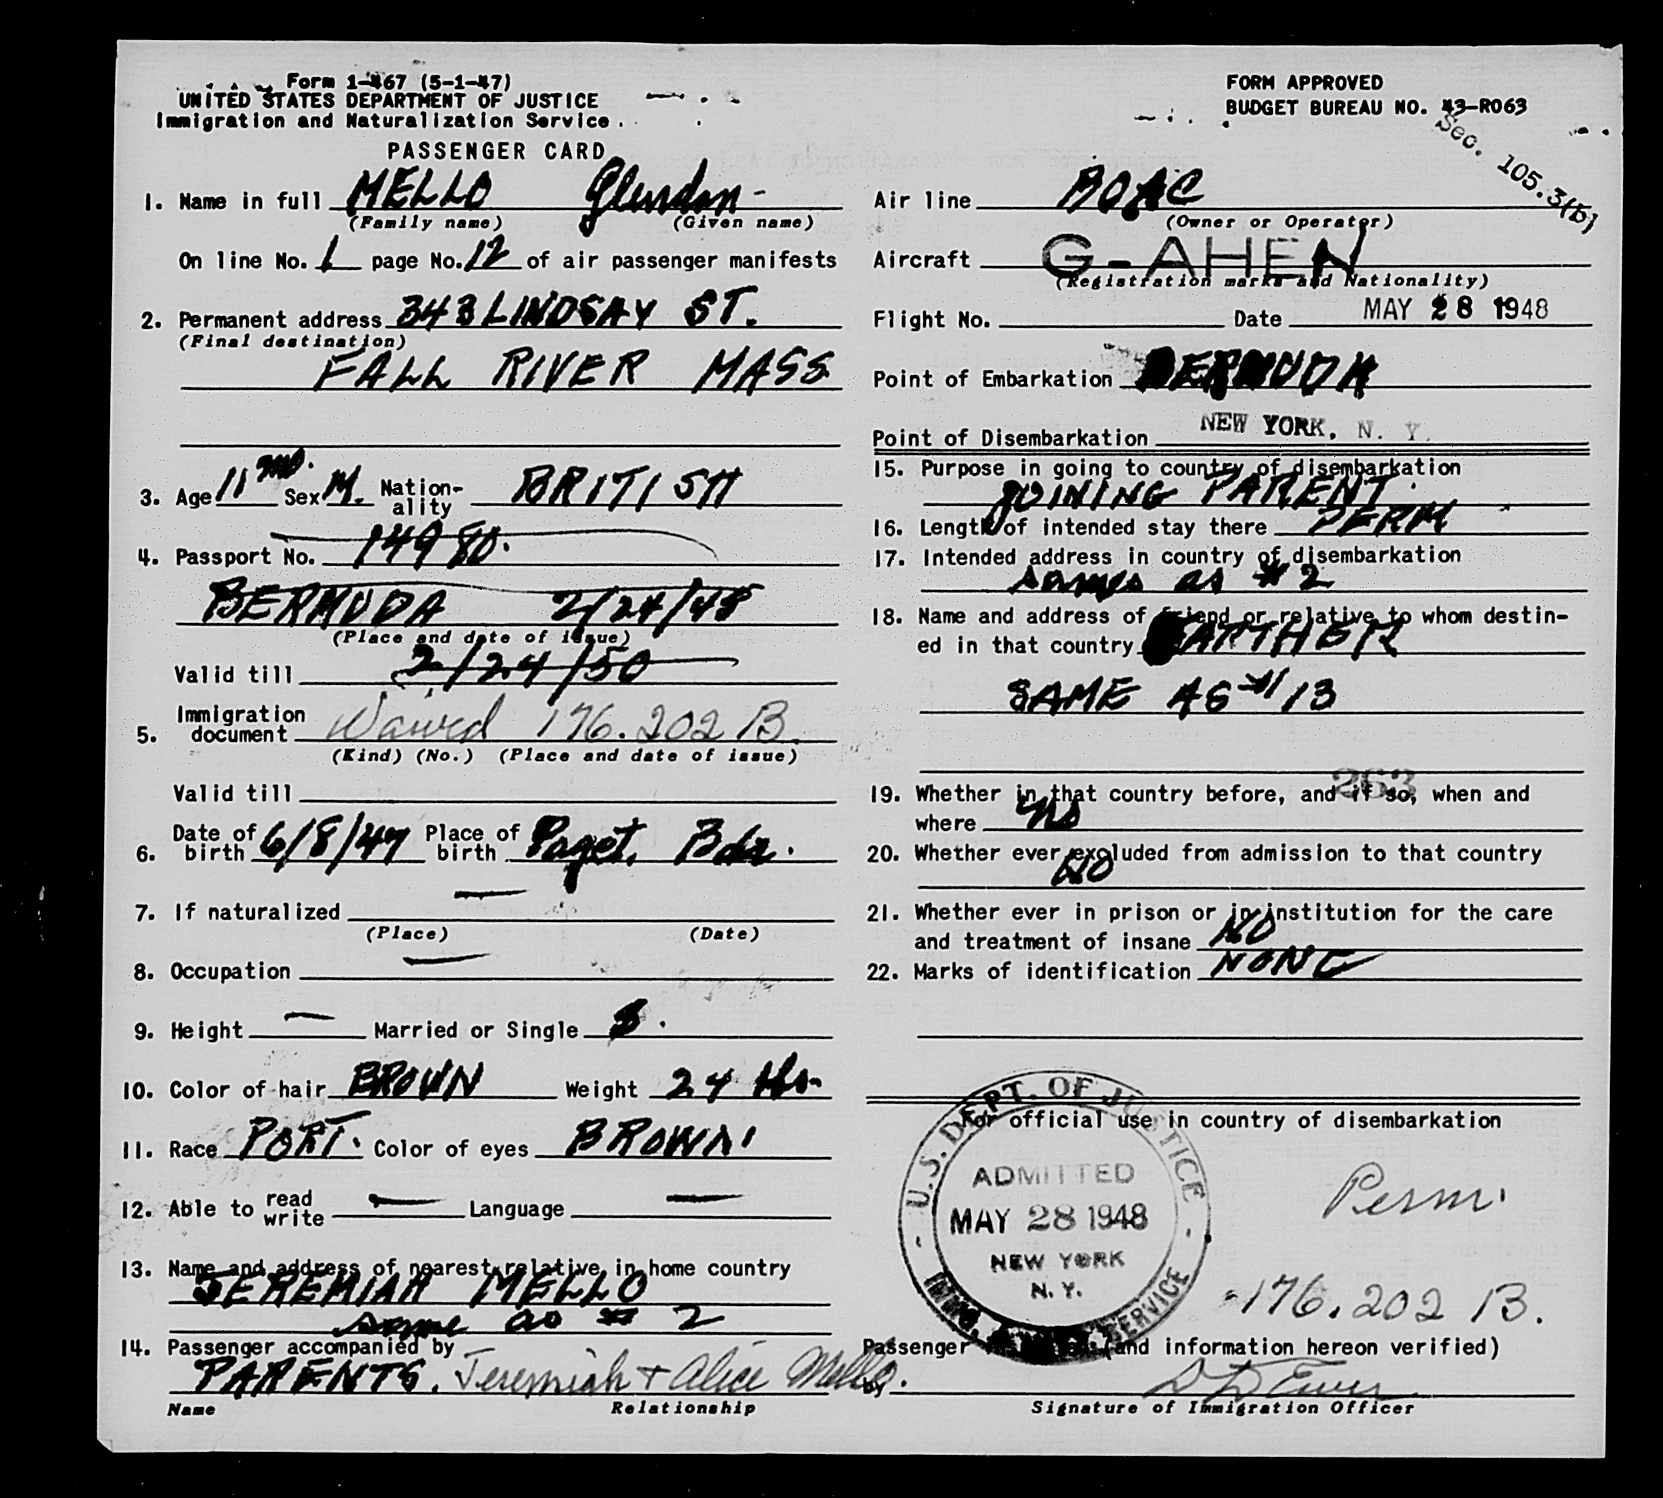 Form I-467 (5-1-47)
UNITED STATES DEPARTMENT OF JUSTICE
Immigration and Naturalization Service
PASSENGER CARD
1. Name in full MELLO Glendon
(Family name) (Given name)
On line No. 1 page No. 12 of air passenger manifests
2. Permanent address 343 LINDSAY ST.
(Final destination)
FALL RIVER MASS
3. Age 11 mo. Sex M. Nation-ality BRITISH
4. Passport No. 14980.
BERMUDA 2/24/48
(Place and date of issue)
Valid till 2/24/50
5. Immigration document Waived 176.202 B.
(Kind) (No.) (Place and date of issue)
Valid till
6. Date of birth 6/8/47 Place of birth Paget, Bda.
7. If naturalized —
(Place) (Date)
8. Occupation —
9. Height — Married or Single S.
10. Color of hair BROWN Weight 24 lbs.
11. Race PORT. Color of eyes BROWN
12. Able to read write — Language —
13. Name and address of nearest relative in home country
JEREMIAH MELLO
same as # 2
14. Passenger accompanied by
PARENTS. Jeremiah + Alice Mello.
Name Relationship
FORM APPROVED
BUDGET BUREAU NO. 43-R063
Sec. 105.3(b)
Air line BOAC
(Owner or Operator)
Aircraft G-AHEN
(Registration marks and Nationality)
Flight No. Date MAY 28 1948
Point of Embarkation BERMUDA
Point of Disembarkation NEW YORK, N. Y.
15. Purpose in going to country of disembarkation
JOINING PARENT.
16. Length of intended stay there PERM
17. Intended address in country of disembarkation
same as # 2
18. Name and address of friend or relative to whom destin-
ed in that country FATHER
SAME AS # 13
263
19. Whether in that country before, and if so, when and
where No
20. Whether ever excluded from admission to that country
NO
21. Whether ever in prison or in institution for the care
and treatment of insane NO
22. Marks of identification NONE
For official use in country of disembarkation
U.S. DEPT. OF JUSTICE
ADMITTED
MAY 28 1948
NEW YORK
N.Y.
IMM. SERVICE
Perm.
176.202 B.
Passenger (and information hereon verified)
by
Signature of Immigration Officer